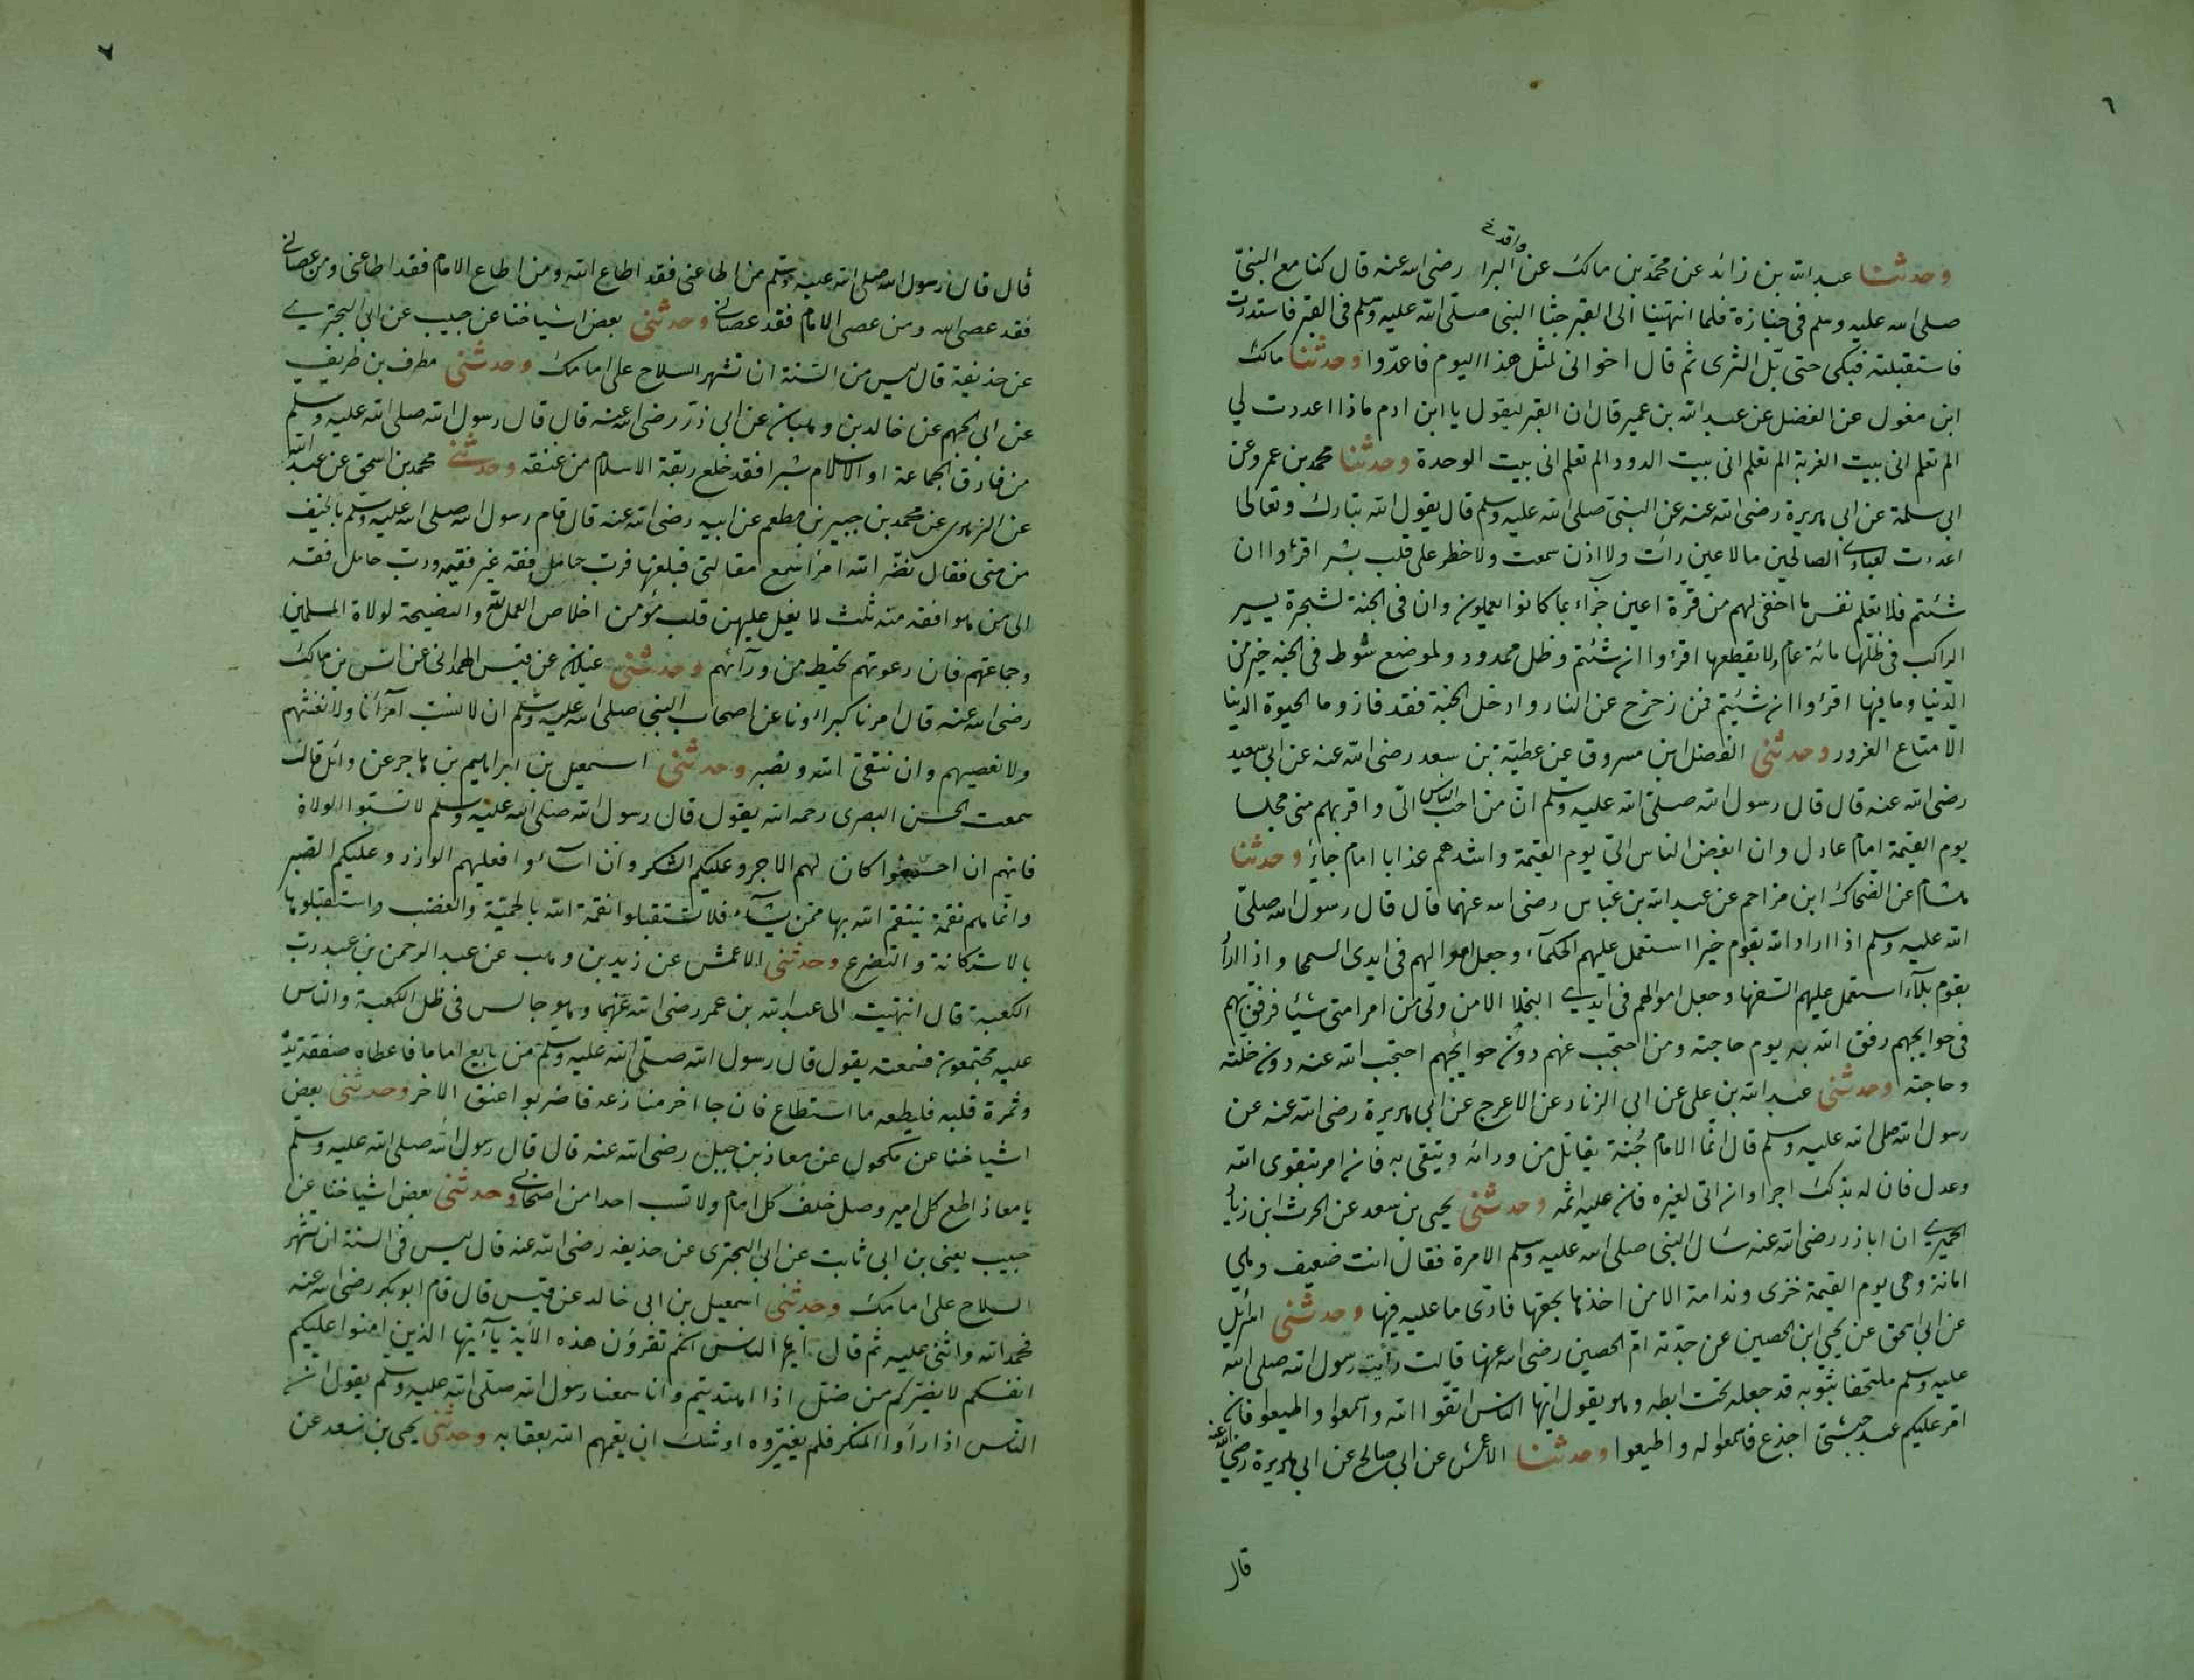 ٦
واقد خ
وحدثنا عبد الله بن زائد عن محمد بن مالك عن البرا رضى الله عنه قال كنا مع النبى
صلى الله عليه وسلم فى جنازة فلما انتهينا الى القبر جثا النبى صلى الله عليه وسلم فى القبر فاستدرت
فاستقبلته فبكى حتى بل الثرى ثم قال اخوانى لمثل هذا اليوم فاعدوا وحدثنا مالك
ابن مغول عن الفضل عن عبد الله بن عمير قال ان القبر ليقول يا ابن ادم ماذا اعددت لي
الم تعلم انى بيت الغربة الم تعلم انى بيت الدود الم تعلم انى بيت الوحدة وحدثنا محمد بن عمرو عن
ابى سلمة عن ابى هريرة رضى الله عنه عن النبى صلى الله عليه وسلم قال يقول الله تبارك وتعالى
اعددت لعبادى الصالحين مالا عين رأت ولا اذن سمعت ولا خطر على قلب بشر اقرءوا ان
شئتم فلا تعلم نفس ما اخفى لهم من قرة اعين جزآء بما كانوا يعملون وان فى الجنة لشجرة يسير
الراكب فى ظلها مائة عام ولا يقطعها اقرءوا ان شئتم وظل ممدود ولموضع سوط فى الجنة خير من
الدنيا وما فيها اقرءوا ان شئتم فمن زحزح عن النار وادخل الجنة فقد فاز وما الحيوة الدنيا
الا متاع الغرور وحدثنى الفضل ابن مسروق عن عطية بن سعد رضى الله عنه عن ابى سعيد
رضى الله عنه قال قال رسول الله صلى الله عليه وسلم ان من احب الناس الى واقربهم منى مجلسا
يوم القيمة امام عادل وان ابغض الناس الى يوم القيمة واشدهم عذابا امام جاير وحدثنا
هشام عن الضحاك ابن مزاحم عن عبد الله بن عباس رضى الله عنهما قال قال رسول الله صلى
الله عليه وسلم اذا اراد الله بقوم خيرا استعمل عليهم الحكمآء وجعل اموالهم فى ايدى السمحا واذا اراد
بقوم بلآء استعمل عليهم السفها وجعل اموالهم فى ايدى البخلا الا من ولى من امر امتى شيئا فرفق بهم
فى حوايجهم رفق الله به يوم حاجته ومن احتجب عنهم دون حوائجهم احتجب الله عنه دون خلته
وحاجته وحدثنى عبد الله بن على عن ابى الزناد عن الاعرج عن ابى هريرة رضى الله عنه عن
رسول الله صلى الله عليه وسلم قال انما الامام جُنة يقاتل من ورائه ويتقى به فان امر بتقوى الله
وعدل فان له بذلك اجرا وان اتى لغيره فان عليه اثمه وحدثنى يحيى بن سعد عن الحرث ابن زياد
الحميرى ان ابا ذر رضى الله عنه سأل النبى صلى الله عليه وسلم الامرة فقال انت ضعيف وهى
امانة وهى يوم القيمة خزى وندامة الا من اخذها بحقها فادى ما عليه فيها وحدثنى اسرائيل
عن ابى اسحق عن يحيى ابن الحصين عن جدته ام الحصين رضى الله عنها قالت رأيت رسول الله صلى الله
عليه وسلم ملتحفا بثوبه قد جعله تحت ابطه وهو يقول ايها الناس اتقوا الله واسمعوا واطيعوا فان
امر عليكم عبد حبشى اجذع فاسمعوا له واطيعوا وحدثنا الأعمش عن ابى صالح عن ابى هريرة رضى الله عنه
قال
٧
قال قال رسول الله صلى الله عليه وسلم من اطاعنى فقد اطاع الله ومن اطاع الامام فقد اطاعنى ومن عصانى
فقد عصى الله ومن عصى الامام فقد عصانى وحدثنى بعض اشياخنا عن حبيب عن ابى البخترى
عن حذيفة قال ليس من السنة ان تشهر السلاح على امامك وحدثنى مطرف بن طريف
عن ابى الجهم عن خالد بن وهبان عن ابى ذر رضى الله عنه قال قال رسول الله صلى الله عليه وسلم
من فارق الجماعة او الاسلام شبرا فقد خلع ربقة الاسلام من عنقه وحدثنى محمد بن اسحق عن عبد الله
عن الزهرى عن محمد بن جبير بن مطعم عن ابيه رضى الله عنه قال قام رسول الله صلى الله عليه وسلم بالخيف
من منى فقال نضر الله امرأ سمع مقالتى فبلغها فرب حامل فقه غير فقيه ورب حامل فقه
الى من هو افقه منه ثلث لا يغل عليهن قلب مؤمن اخلاص العمل لله والنصيحة لولاة المسلمين
وجماعتهم فان دعوتهم تحيط من ورآئهم وحدثنى غيلان عن قيس الهمدانى عن انس بن مالك
رضى الله عنه قال امرنا كبراءونا عن اصحاب النبى صلى الله عليه وسلم ان لا نسب امرآئنا ولا نغشهم
ولا نعصيهم وان نتقى الله ونصبر وحدثنى اسمعيل بن ابراهيم بن هاجر عن وائل قالت
سمعت الحسن البصرى رحمه الله يقول قال رسول الله صلى الله عليه وسلم لا تسبوا الولاة
فانهم ان احسنوا كان لهم الاجر وعليكم الشكر وان اسآءوا فعليهم الوزر وعليكم الصبر
وانما هم نقمة ينتقم الله بها ممن يشآء فلا تستقبلوا نقمة الله بالحمية والغضب واستقبلوها
بالاستكانة والتضرع وحدثنى الاعمش عن زيد بن وهب عن عبد الرحمن بن عبد رب
الكعبة قال انتهيت الى عبد الله بن عمر رضى الله عنهما وهو جالس فى ظل الكعبة والناس
عليه مجتمعون فسمعته يقول قال رسول الله صلى الله عليه وسلم من بايع اماما فاعطاه صفقة يده
وثمرة قلبه فليطعه ما استطاع فان جا اخر منازعه فاضربوا عنق الاخر وحدثنى بعض
اشياخنا عن مكحول عن معاذ بن جبل رضى الله عنه قال قال رسول الله صلى الله عليه وسلم
يا معاذ اطع كل امير وصل خلف كل امام ولا تسب احدا من اصحابى وحدثنى بعض اشياخنا عن
حبيب يعنى بن ابى ثابت عن ابى البخترى عن حذيفه رضى الله عنه قال ليس فى السنة ان تشهر
السلاح على امامك وحدثنى اسمعيل بن ابى خالد عن قيس قال قام ابو بكر رضى الله عنه
فحمد الله واثنى عليه ثم قال ايها الناس انكم تقرؤن هذه الآية يآءيها الذين امنوا عليكم
انفسكم لا يضركم من ضل اذا اهتديتم وانا سمعنا رسول الله صلى الله عليه وسلم يقول ان
الناس اذا رأوا المنكر فلم يغيروه اوشك ان يعمهم الله بعقابه وحدثنى يحيى بن سعد عن